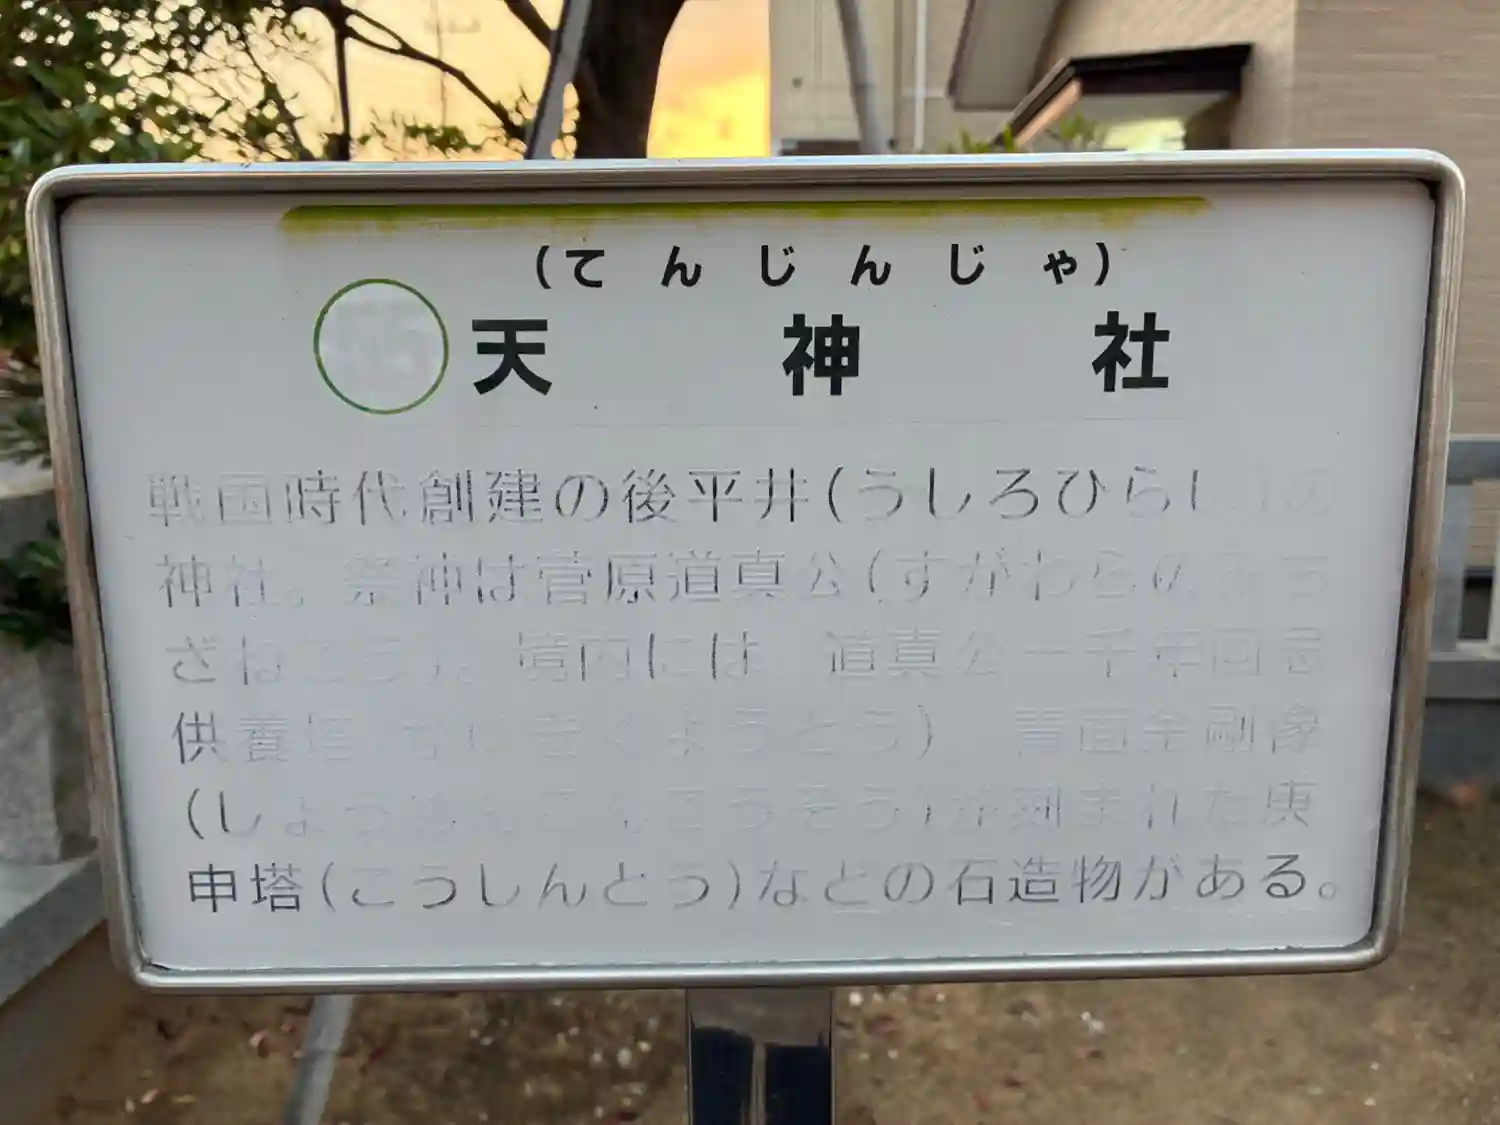 (てんじんじゃ)
天神社
戦国時代創建の後平井(うしろひらい)の
神社。祭神は菅原道真公(すがわらのみち
ざねこう)。境内には、道真公一千年回忌
供養塔 きくようとう) 青面金剛像
(しょうめんこんごうぞう)が刻まれた庚
申塔(こうしんとう)などの石造物がある。